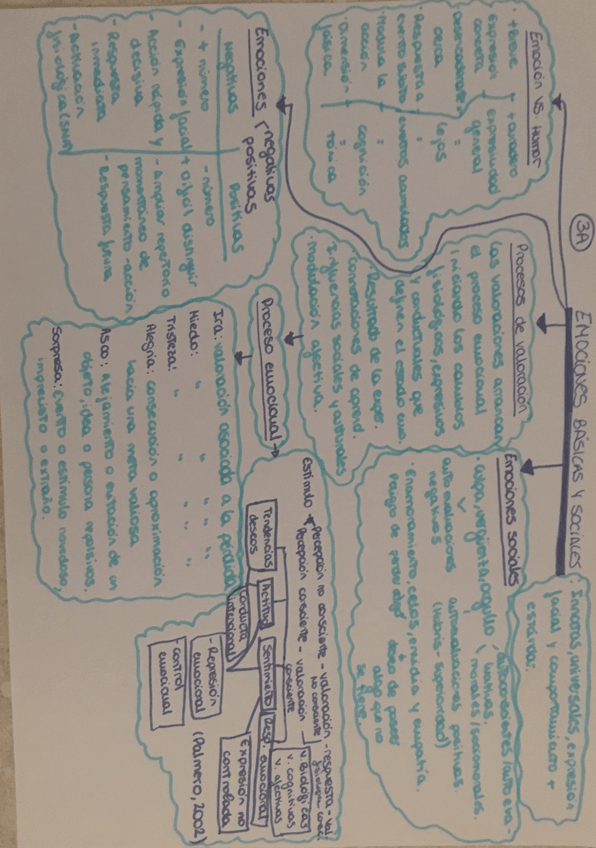 3A
EMOCIONES BÁSICAS Y SOCIALES: Innatas, universales, expresión
facial y comportamiento +
estándar.
Emoción vs. Humor
· + Breve + duradero
· Expresión expresividad
concreta general
· Desencadenante "
cerca lejos
· Respuesta a "
evento súbito eventos acumulados
· Modula la "
acción cognición
· Dimensión + "
fásica tónica
Procesos de valoración
Las valoraciones arrancan
el proceso emocional
iniciando los cambios
fisiológicos, expresivos
y conductuales que
definen el estado emo.
· Resultado de la exper.
· Connotaciones de aprend.
· Influencias sociales y culturales
· modulación afectiva.
Emociones sociales
autoconscientes/auto eva-
luativas.
morales/sociomorales.
· Culpa, vergüenza, orgullo
autoevaluaciones automaluaciones positivas.
negativas (hubris = superioridad)
· Enamoramiento, celos, envidia y empatía.
riesgo de perder algo deseo de poseer
algo que no
se tiene.
Emociones negativas
positivas
Negativas Positivas
- + número - número
- Expresión facial + difícil distinguir
- Acción rápida y - Ampliar repertorio
decisiva momentáneo de
pensamiento-acción
- Respuesta - Respuesta previa
inmediata
- Activación
fisiológica (SNA)
Proceso emocional
estímulo Percepción no consciente - valoración - respuesta - val.
no consciente
Percepción consciente - valoración
consciente
v. Biológicas
v. cognitivas
v. afectivas
Tendencias
deseos
Actitud
Sentimiento
Resp. emocional
conducta
intencional
Expresión no
controlada
- Represión
emocional
- control
emocional
(Palmero, 2002)
Ira: valoración asociada a la pérdida
Miedo: " " " "
Tristeza: " " " "
Alegría: consecución o aproximación
hacia una meta valiosa
Asco: Alejamiento o evitación de un
objeto, idea o persona repulsivas.
Sorpresa: Evento o estímulo novedoso,
imprevisto o extraño.